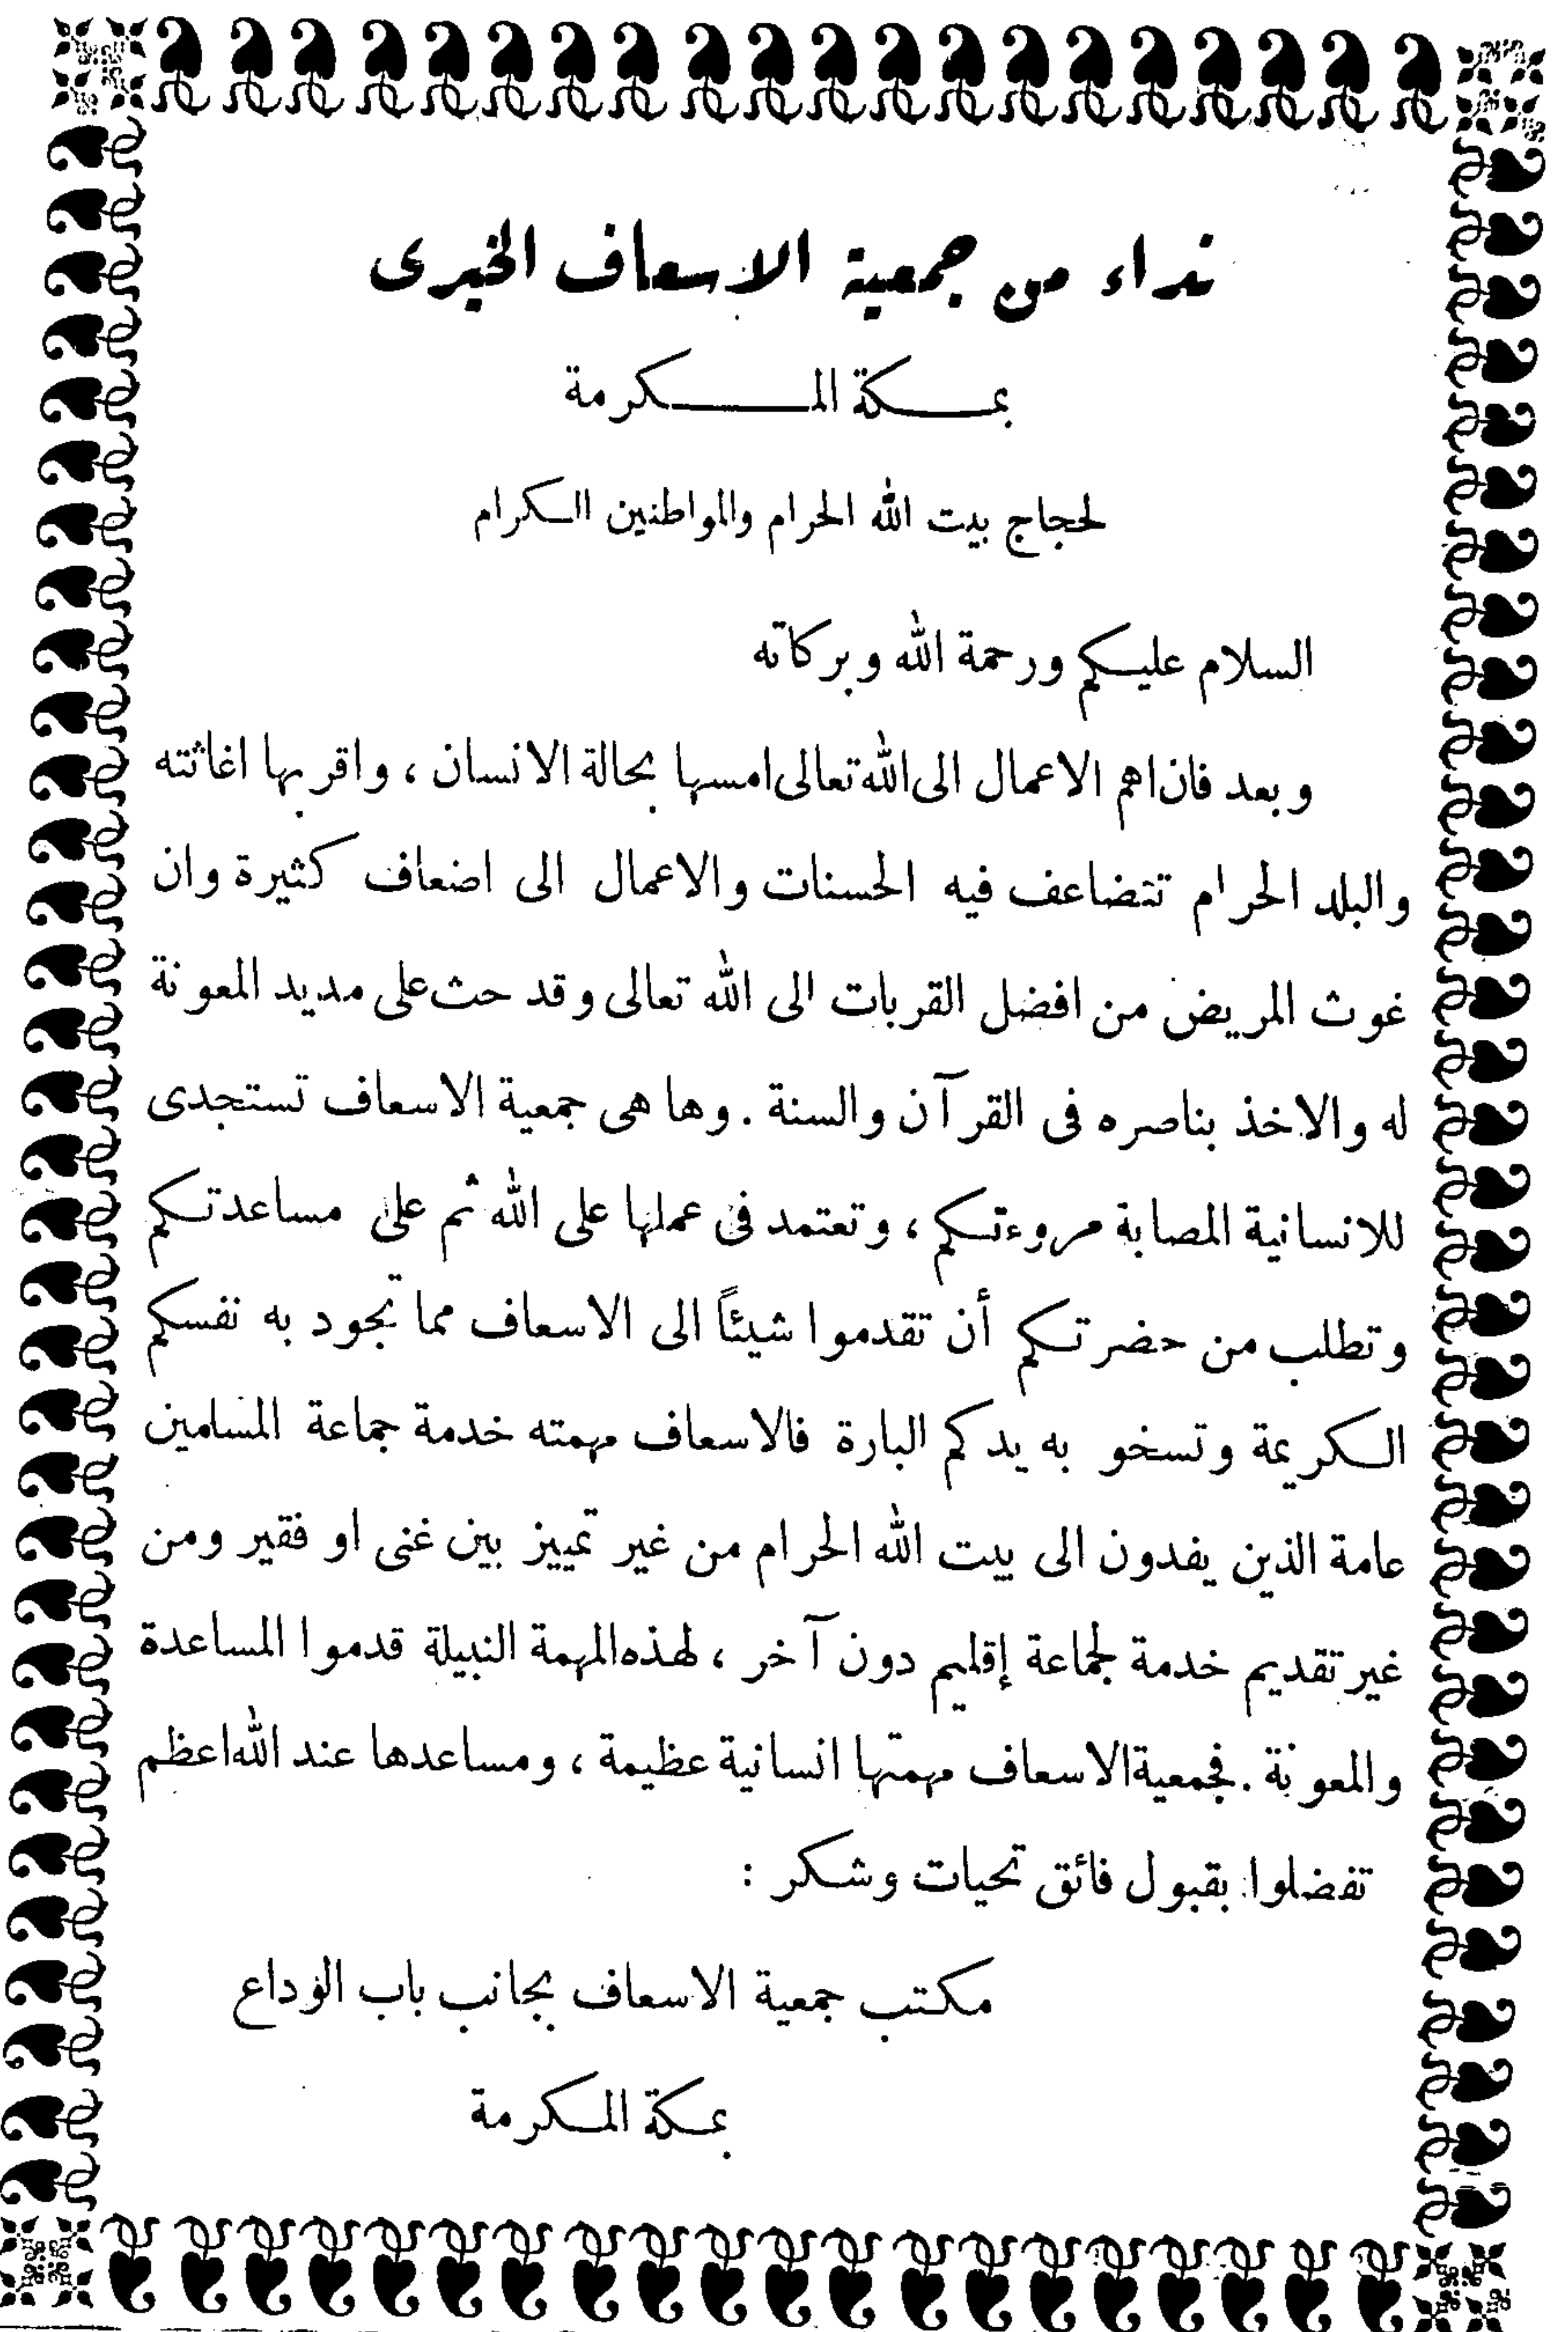 نداء من جمعية الاسعاف الخيرى
بمكة المكرمة
لحجاج بيت الله الحرام والمواطنين الكرام
السلام عليكم ورحمة الله وبركاته
وبعد فان اهم الاعمال الى الله تعالى امسها بحالة الانسان ، واقربها اغاثته
والبلد الحرام تتضاعف فيه الحسنات والاعمال الى اضعاف كثيرة وان
غوث المريض من افضل القربات الى الله تعالى وقد حث على مديد المعونة
له والاخذ بناصره فى القرآن والسنة . وها هى جمعية الاسعاف تستجدى
للانسانية المصابة مروءتكم ، وتعتمد فى عملها على الله ثم على مساعدتكم
وتطلب من حضرتكم أن تقدموا شيئاً الى الاسعاف مما تجود به نفسكم
الكريمة وتسخو به يدكم البارة فالاسعاف مهمته خدمة جماعة المسلمين
عامة الذين يفدون الى بيت الله الحرام من غير تمييز بين غنى او فقير ومن
غير تقديم خدمة لجماعة إقليم دون آخر ، لهذه المهمة النبيلة قدموا المساعدة
والمعونة . فجمعية الاسعاف مهمتها انسانية عظيمة ، ومساعدها عند الله اعظم
تفضلوا بقبول فائق تحيات وشكر :
مكتب جمعية الاسعاف بجانب باب الوداع
بمكة المكرمة